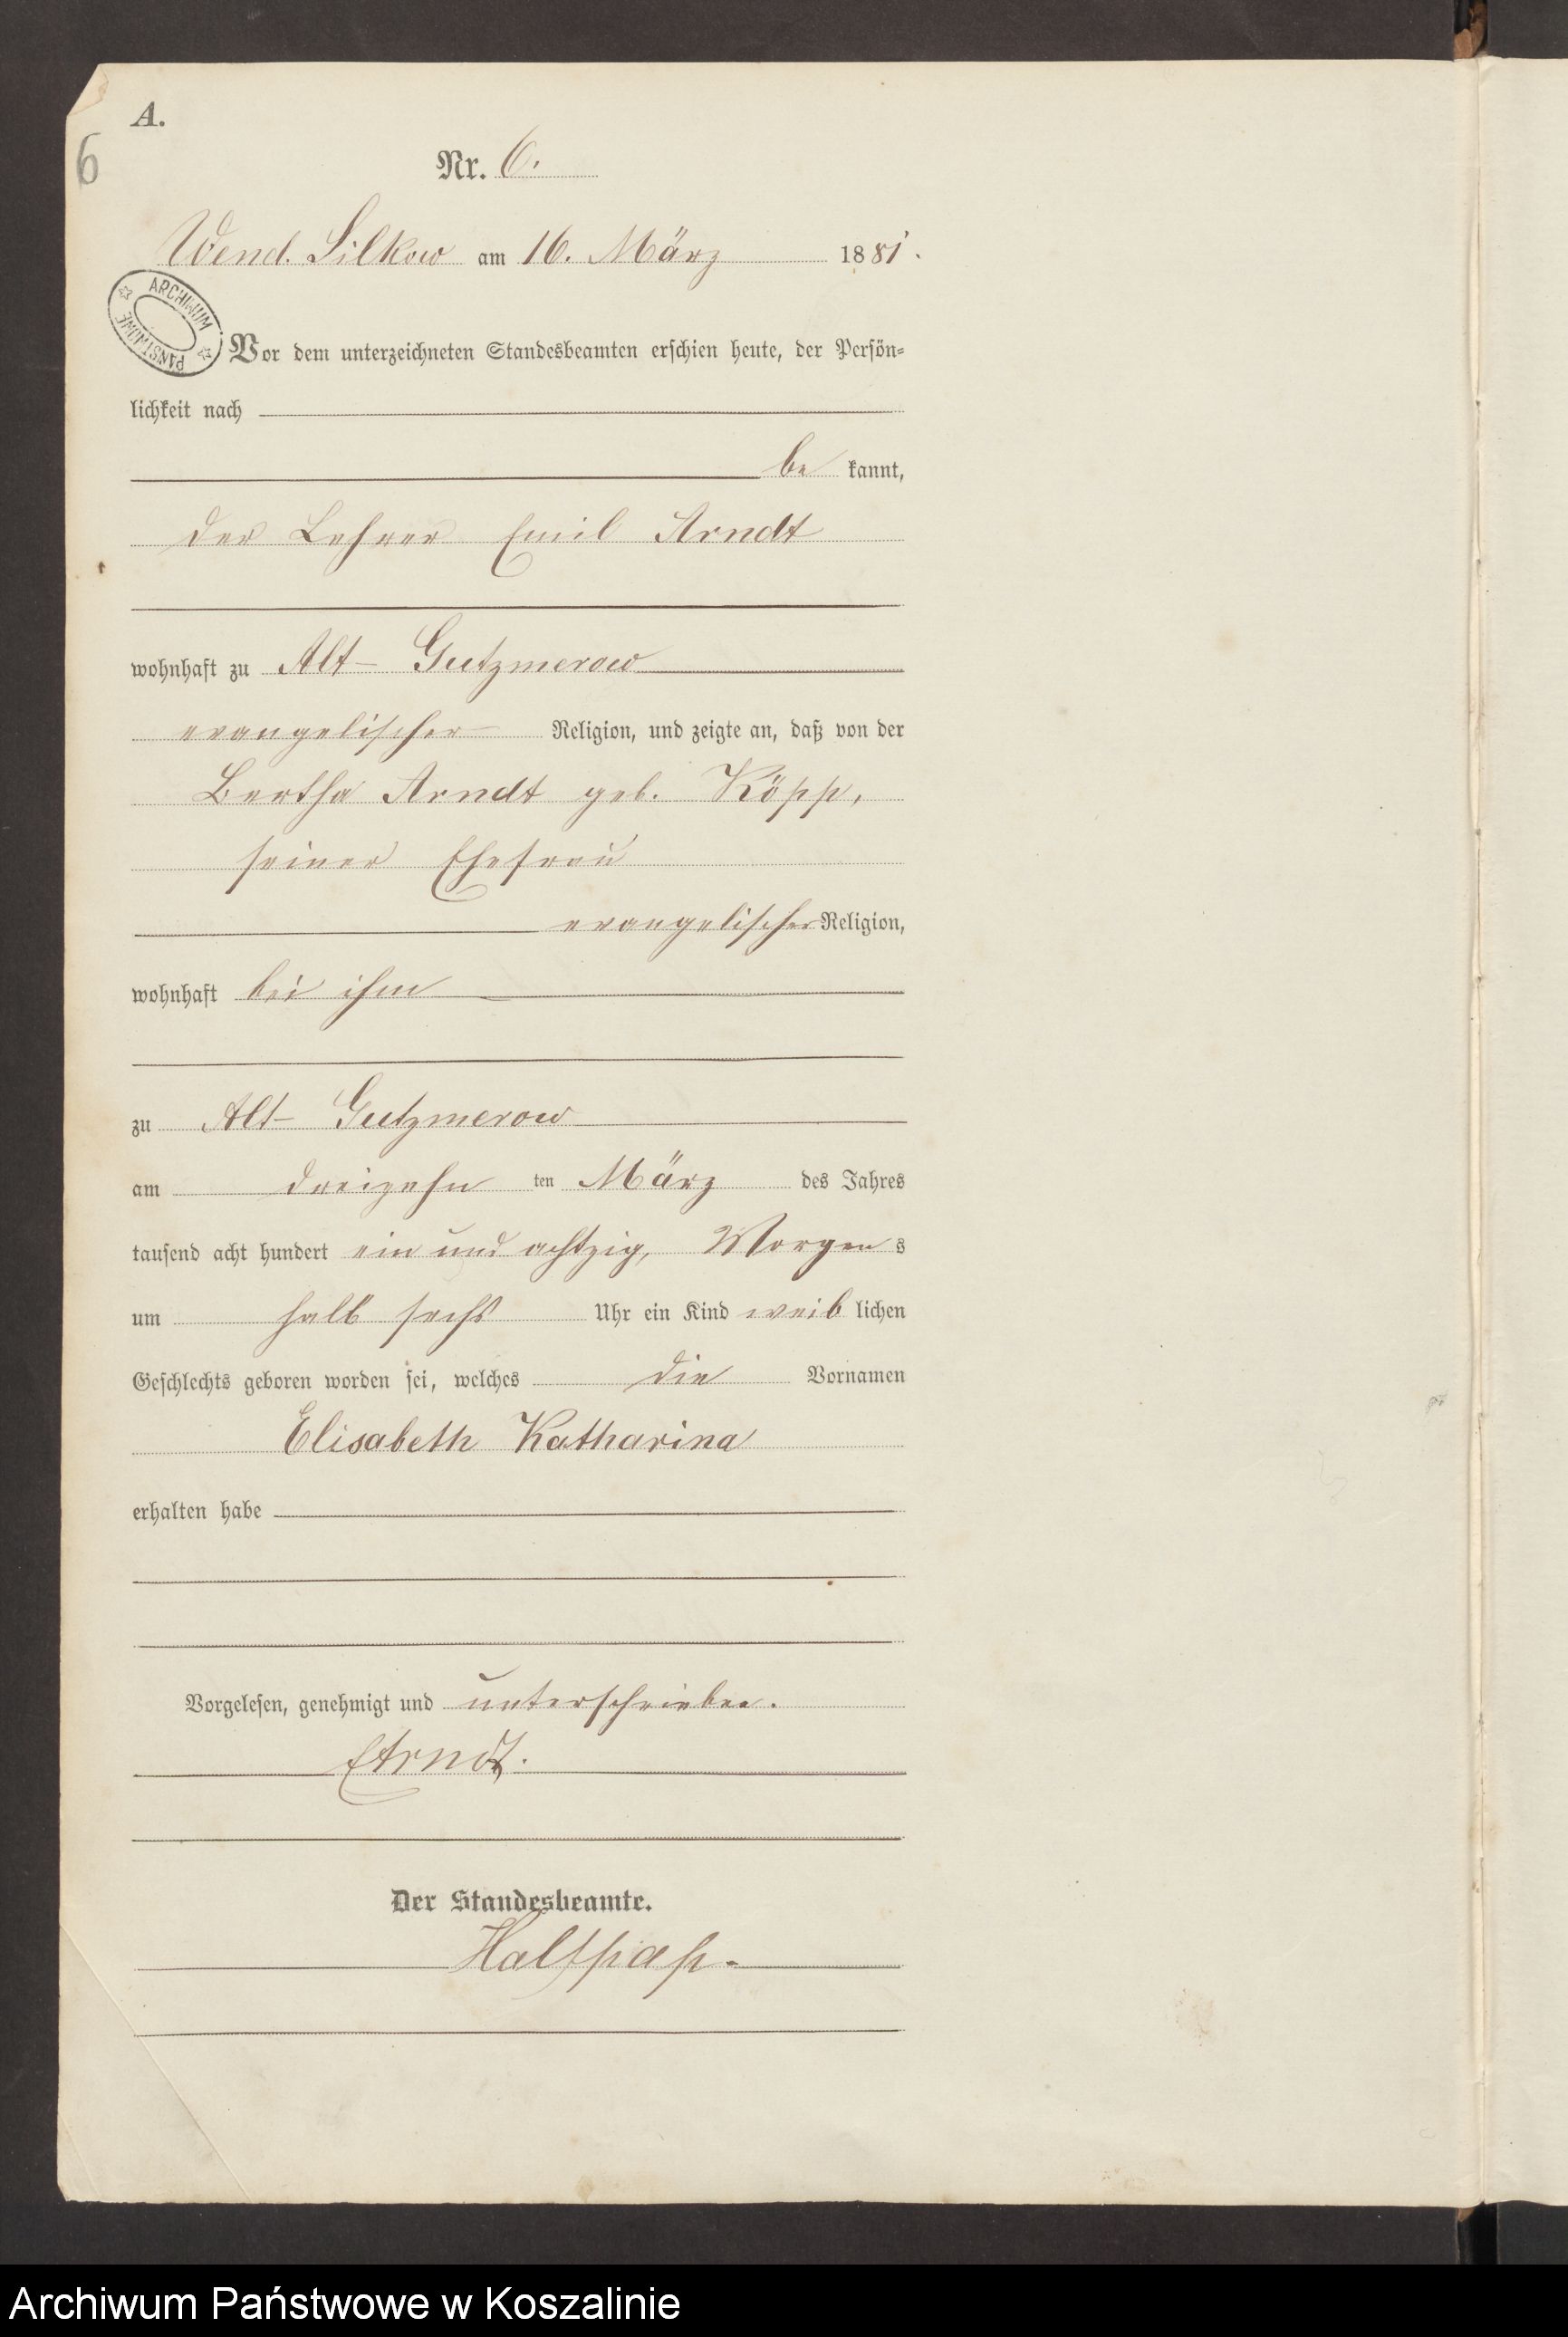 A.
6
Nr. 6.
Wend. Silkow am 16. März 1881.
ARCHIWUM PAŃSTWOWE
Vor dem unterzeichneten Standesbeamten erschien heute, der Persön-
lichkeit nach
be kannt,
der Lehrer Emil Arndt
wohnhaft zu Alt-Gutzmerow
evangelischer Religion, und zeigte an, daß von der
Bertha Arndt geb. Köpp,
seiner Ehefrau
evangelischer Religion,
wohnhaft bei ihm
zu Alt-Gutzmerow
am dreizehn ten März des Jahres
tausend acht hundert ein und achtzig, Morgen s
um halb sechs Uhr ein Kind weib lichen
Geschlechts geboren worden sei, welches die Vornamen
Elisabeth Katharina
erhalten habe
Vorgelesen, genehmigt und unterschrieben.
EArndt.
Der Standesbeamte.
Halfpap.
Archiwum Państwowe w Koszalinie